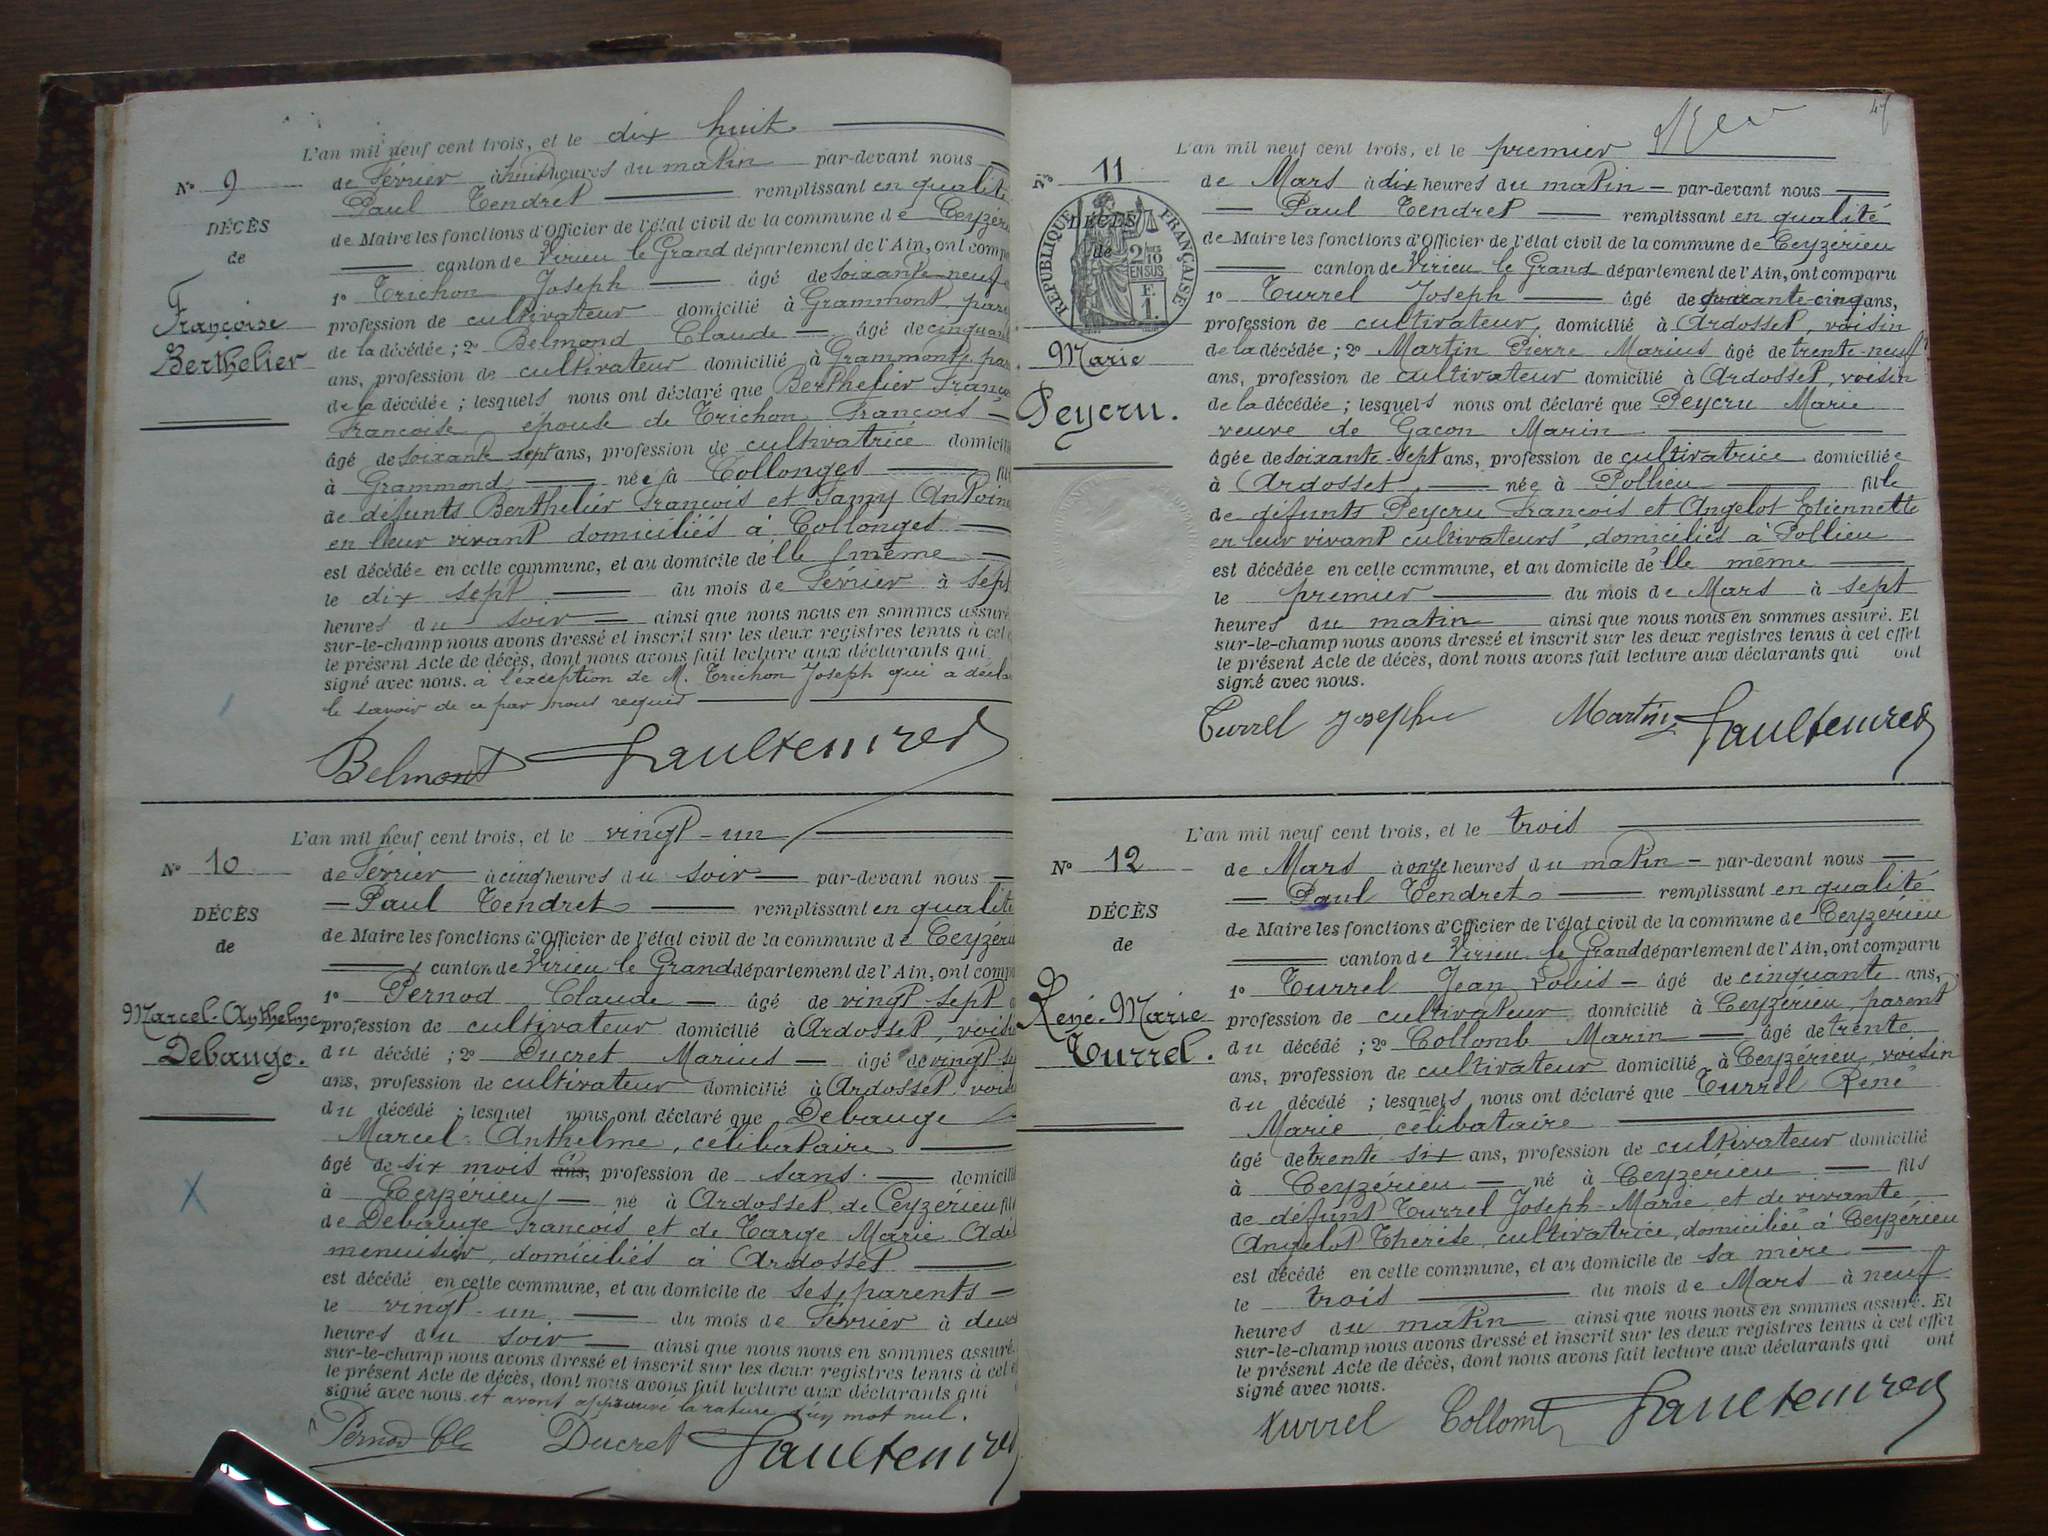 L'an mil neuf cent trois, et le dix huit
No 9
de Février à huit heures du matin par-devant nous
Paul Tendret remplissant en qualité
DÉCÈS
de Maire les fonctions d'Officier de l'état civil de la commune de Ceyzéri
de
canton de Virieu le Grand département de l'Ain, ont comp
1o Trichon Joseph âgé de soixante-neuf
Françoise
profession de cultivateur domicilié à Grammont, par
Berthelier
de la décédée; 2o Belmond Claude âgé de cinquant
ans, profession de cultivateur domicilié à Grammont, pa
de la décédée; lesquels nous ont déclaré que Berthelier Franço
Françoise, épouse de Trichon François
âgé de soixante sept ans, profession de cultivatrice domicili
à Grammond née à Collonges fil
de défunts Berthelier François et Antoin
en leur vivant domiciliés à Collonges
est décédée en cette commune, et au domicile de lle même
le dix sept du mois de Février à sept
heures du soir ainsi que nous nous en sommes assuré
sur-le-champ nous avons dressé et inscrit sur les deux registres tenus à cet
le présent Acte de décès, dont nous avons fait lecture aux déclarants qui
signé avec nous. à l'exception de M. Trichon Joseph qui a décla
le savoir de ce par nous requis
Belmont Paul Tendret
L'an mil neuf cent trois, et le vingt-un
No 10
de Février à cinq heures du soir par-devant nous
Paul Tendret remplissant en qualité
DÉCÈS
de Maire les fonctions d'Officier de l'état civil de la commune de Ceyzéri
de
canton de Virieu le Grand département de l'Ain, ont comp
1o Pernod Claude âgé de vingt sept
Marcel-Anthelme
profession de cultivateur domicilié à Ardosset, vois
Debauge.
du décédé; 2o Ducret Marius âgé de vingt-s
ans, profession de cultivateur domicilié à Ardosset, vois
du décédé; lesquel nous ont déclaré que Debauge
Marcel-Anthelme, célibataire
âgé de six mois ans, profession de sans domicili
à Ceyzérieu né à Ardosset de Ceyzérieu fils
de Debauge François et de Targe Marie Adè
menuisier, domiciliés à Ardosset
est décédé en cette commune, et au domicile de ses parents
le vingt-un du mois de Février à deux
heures du soir ainsi que nous nous en sommes assuré
sur-le-champ nous avons dressé et inscrit sur les deux registres tenus à cet
le présent Acte de décès, dont nous avons fait lecture aux déclarants qui
signé avec nous. et avont approuvé la rature d'un mot nul.
Pernod Cle Ducret Paul Tendret
L'an mil neuf cent trois, et le premier
No 11
de Mars à dix heures du matin par-devant nous
Paul Tendret remplissant en qualité
RÉPUBLIQUE FRANÇAISE
DÉCÈS
de
2/10 EN SUS
F. 1.
de Maire les fonctions d'Officier de l'état civil de la commune de Ceyzérieu
canton de Virieu le Grand département de l'Ain, ont comparu
1o Turrel Joseph âgé de quarante-cinq ans,
profession de cultivateur, domicilié à Ardosset, voisin
Marie
de la décédée; 2o Martin Pierre Marius âgé de trente-neuf
ans, profession de cultivateur domicilié à Ardosset, voisin
Peycru.
de la décédée; lesquels nous ont déclaré que Peycru Marie
veuve de Gacon Marin
âgée de soixante-sept ans, profession de cultivatrice domiciliée
à Ardosset, née à Pollieu fille
de défunts Peycru François et Angelot Etiennette
en leur vivant cultivateurs, domiciliés à Pollieu
est décédée en cette commune, et au domicile de lle même
le premier du mois de Mars à sept
heures du matin ainsi que nous nous en sommes assuré. Et
sur-le-champ nous avons dressé et inscrit sur les deux registres tenus à cet effet
le présent Acte de décès, dont nous avons fait lecture aux déclarants qui ont
signé avec nous.
Turrel Joseph Martin Paul Tendret
L'an mil neuf cent trois, et le trois
No 12
de Mars à onze heures du matin par-devant nous
Paul Tendret remplissant en qualité
DÉCÈS
de Maire les fonctions d'Officier de l'état civil de la commune de Ceyzérieu
de
canton de Virieu le Grand département de l'Ain, ont comparu
1o Turrel Jean Louis âgé de cinquante ans,
René-Marie
profession de cultivateur domicilié à Ceyzérieu, parent
Turrel.
du décédé; 2o Collomb Marin âgé de trente
ans, profession de cultivateur domicilié à Ceyzérieu, voisin
du décédé; lesquels nous ont déclaré que Turrel René
Marie, célibataire
âgé de trente six ans, profession de cultivateur domicilié
à Ceyzérieu né à Ceyzérieu fils
de défunt Turrel Joseph-Marie et de vivante
Angelot Thérèse, cultivatrice, domiciliée à Ceyzérieu
est décédé en cette commune, et au domicile de sa mère
le trois du mois de Mars à neuf
heures du matin ainsi que nous nous en sommes assuré. Et
sur-le-champ nous avons dressé et inscrit sur les deux registres tenus à cet effet
le présent Acte de décès, dont nous avons fait lecture aux déclarants qui ont
signé avec nous.
Turrel Collomb Paul Tendret